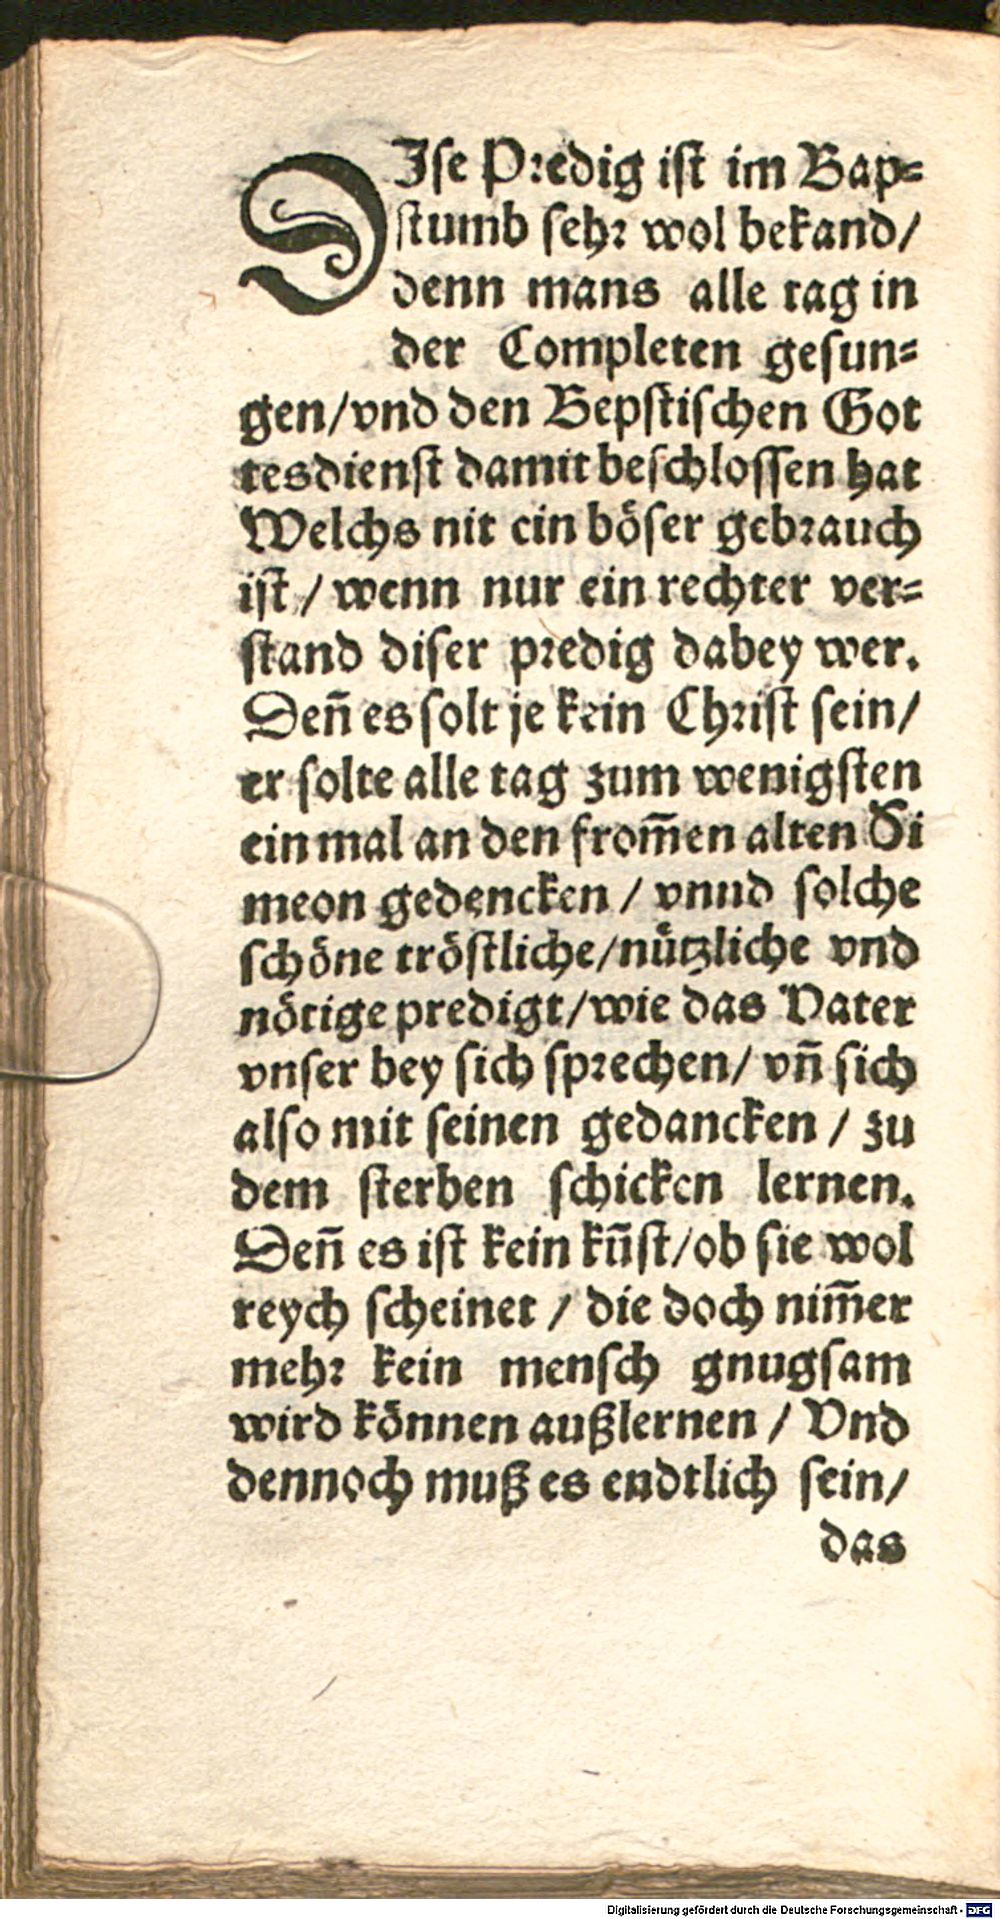 DIſe Predig iſt im Bap⸗
ſtumb ſehr wol bekand/
denn mans alle tag in
der Completen geſun⸗
gen/vnd den Bepſtiſchen Got
tesdienſt damit beſchloſſen hat
Welchs nit ein böſer gebrauch
iſt/ wenn nur ein rechter ver⸗
ſtand diſer predig dabey wer.
Den̄ es ſolt je kein Chriſt ſein/
er ſolte alle tag zum wenigſten
ein mal an den from̄en alten Si
meon gedencken / vnnd ſolche
ſchöne tröſtliche/nützliche vnd
nötige predigt/wie das Vater
vnſer bey ſich ſprechen/ vn̄ ſich
alſo mit ſeinen gedancken / zu
dem ſterben ſchicken lernen.
Den̄ es iſt kein kūſt/ob ſie wol
reych ſcheinet / die doch nim̄er
mehr kein menſch gnugſam
wird können außlernen / Vnd
dennoch muß es endtlich ſein/
das
Digitalisierung gefördert durch die Deutsche Forschungsgemeinschaft - DFG